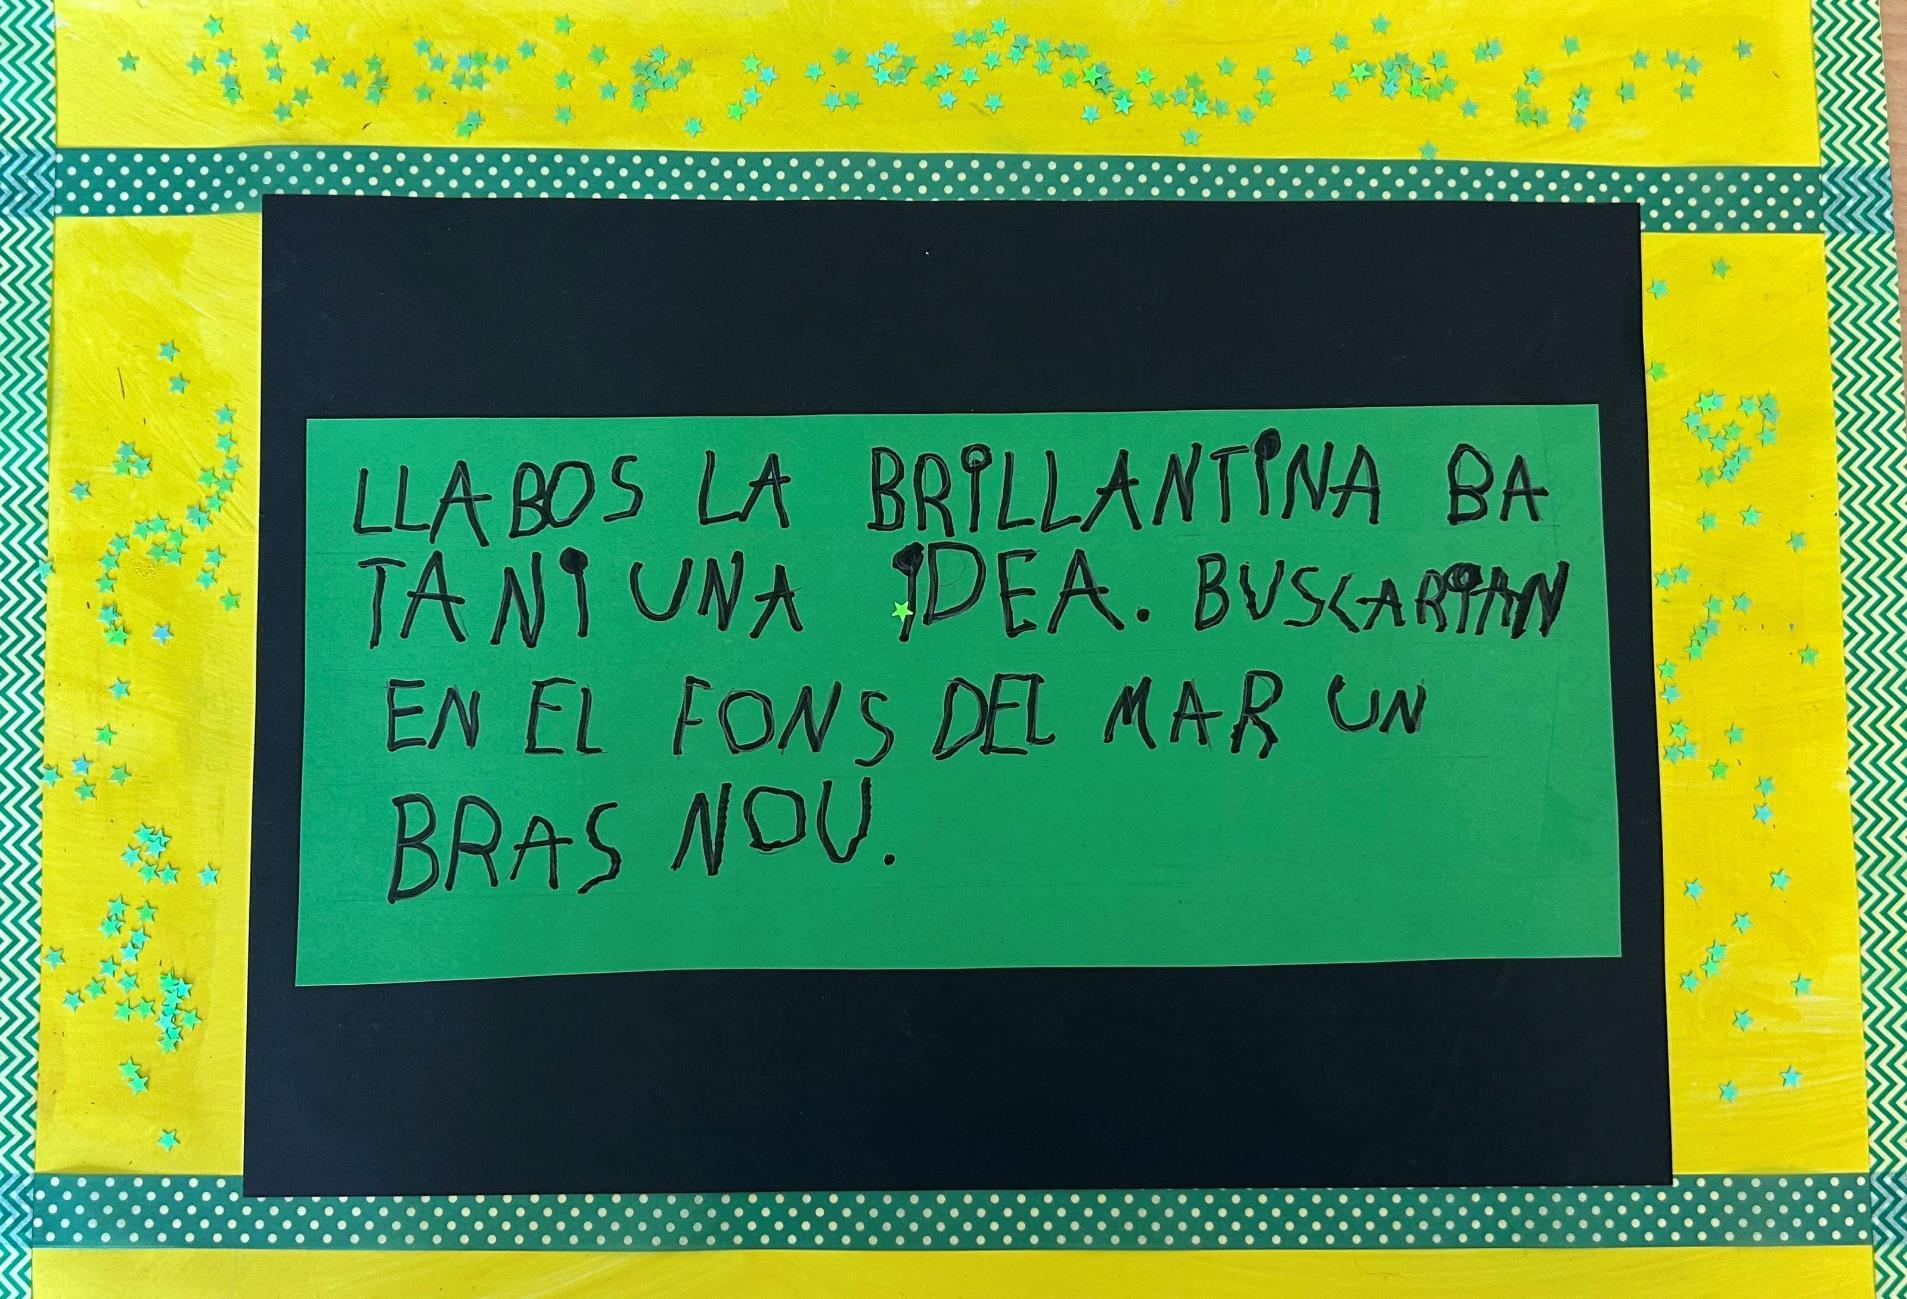 LLABOS LA BRILLANTINA BA
TANI UNA IDEA. BUSCARIAN
EN EL FONS DEL MAR UN
BRAS NOU.